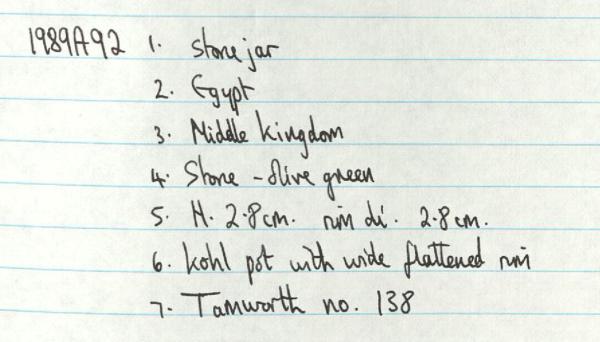 1989A92 1. Stone jar
2. Egypt
3. Middle Kingdom
4. Stone - Olive green
5. H. 2.8cm. rim di. 2.8cm.
6. Kohl pot with wide flattened rim
7. Tamworth no. 138